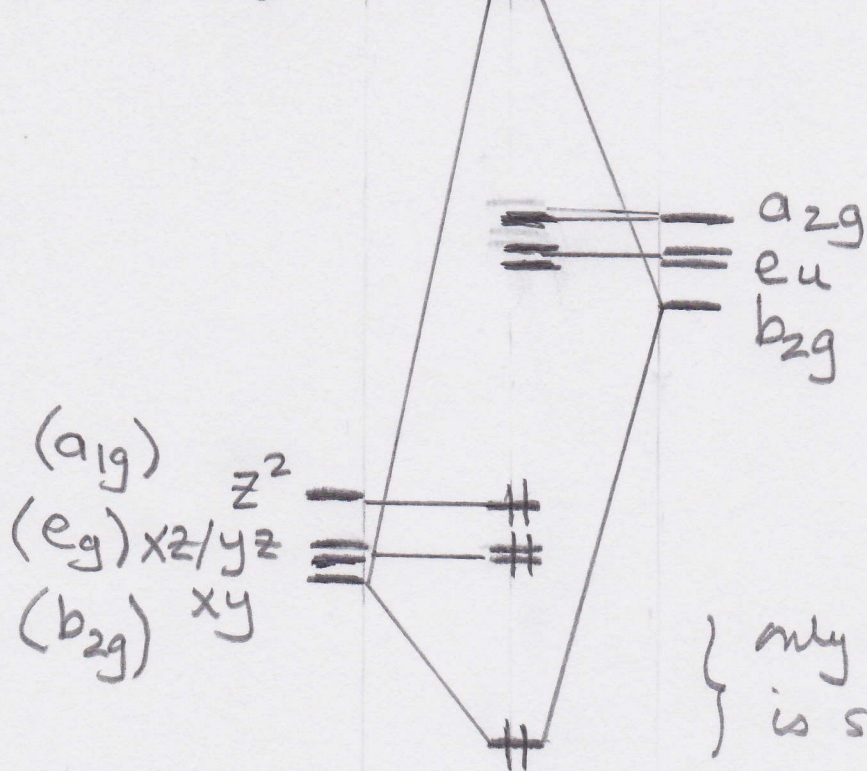 a2g
eu
b2g
(a1g) z²
(eg) xz/yz
(b2g) xy
} only
is s